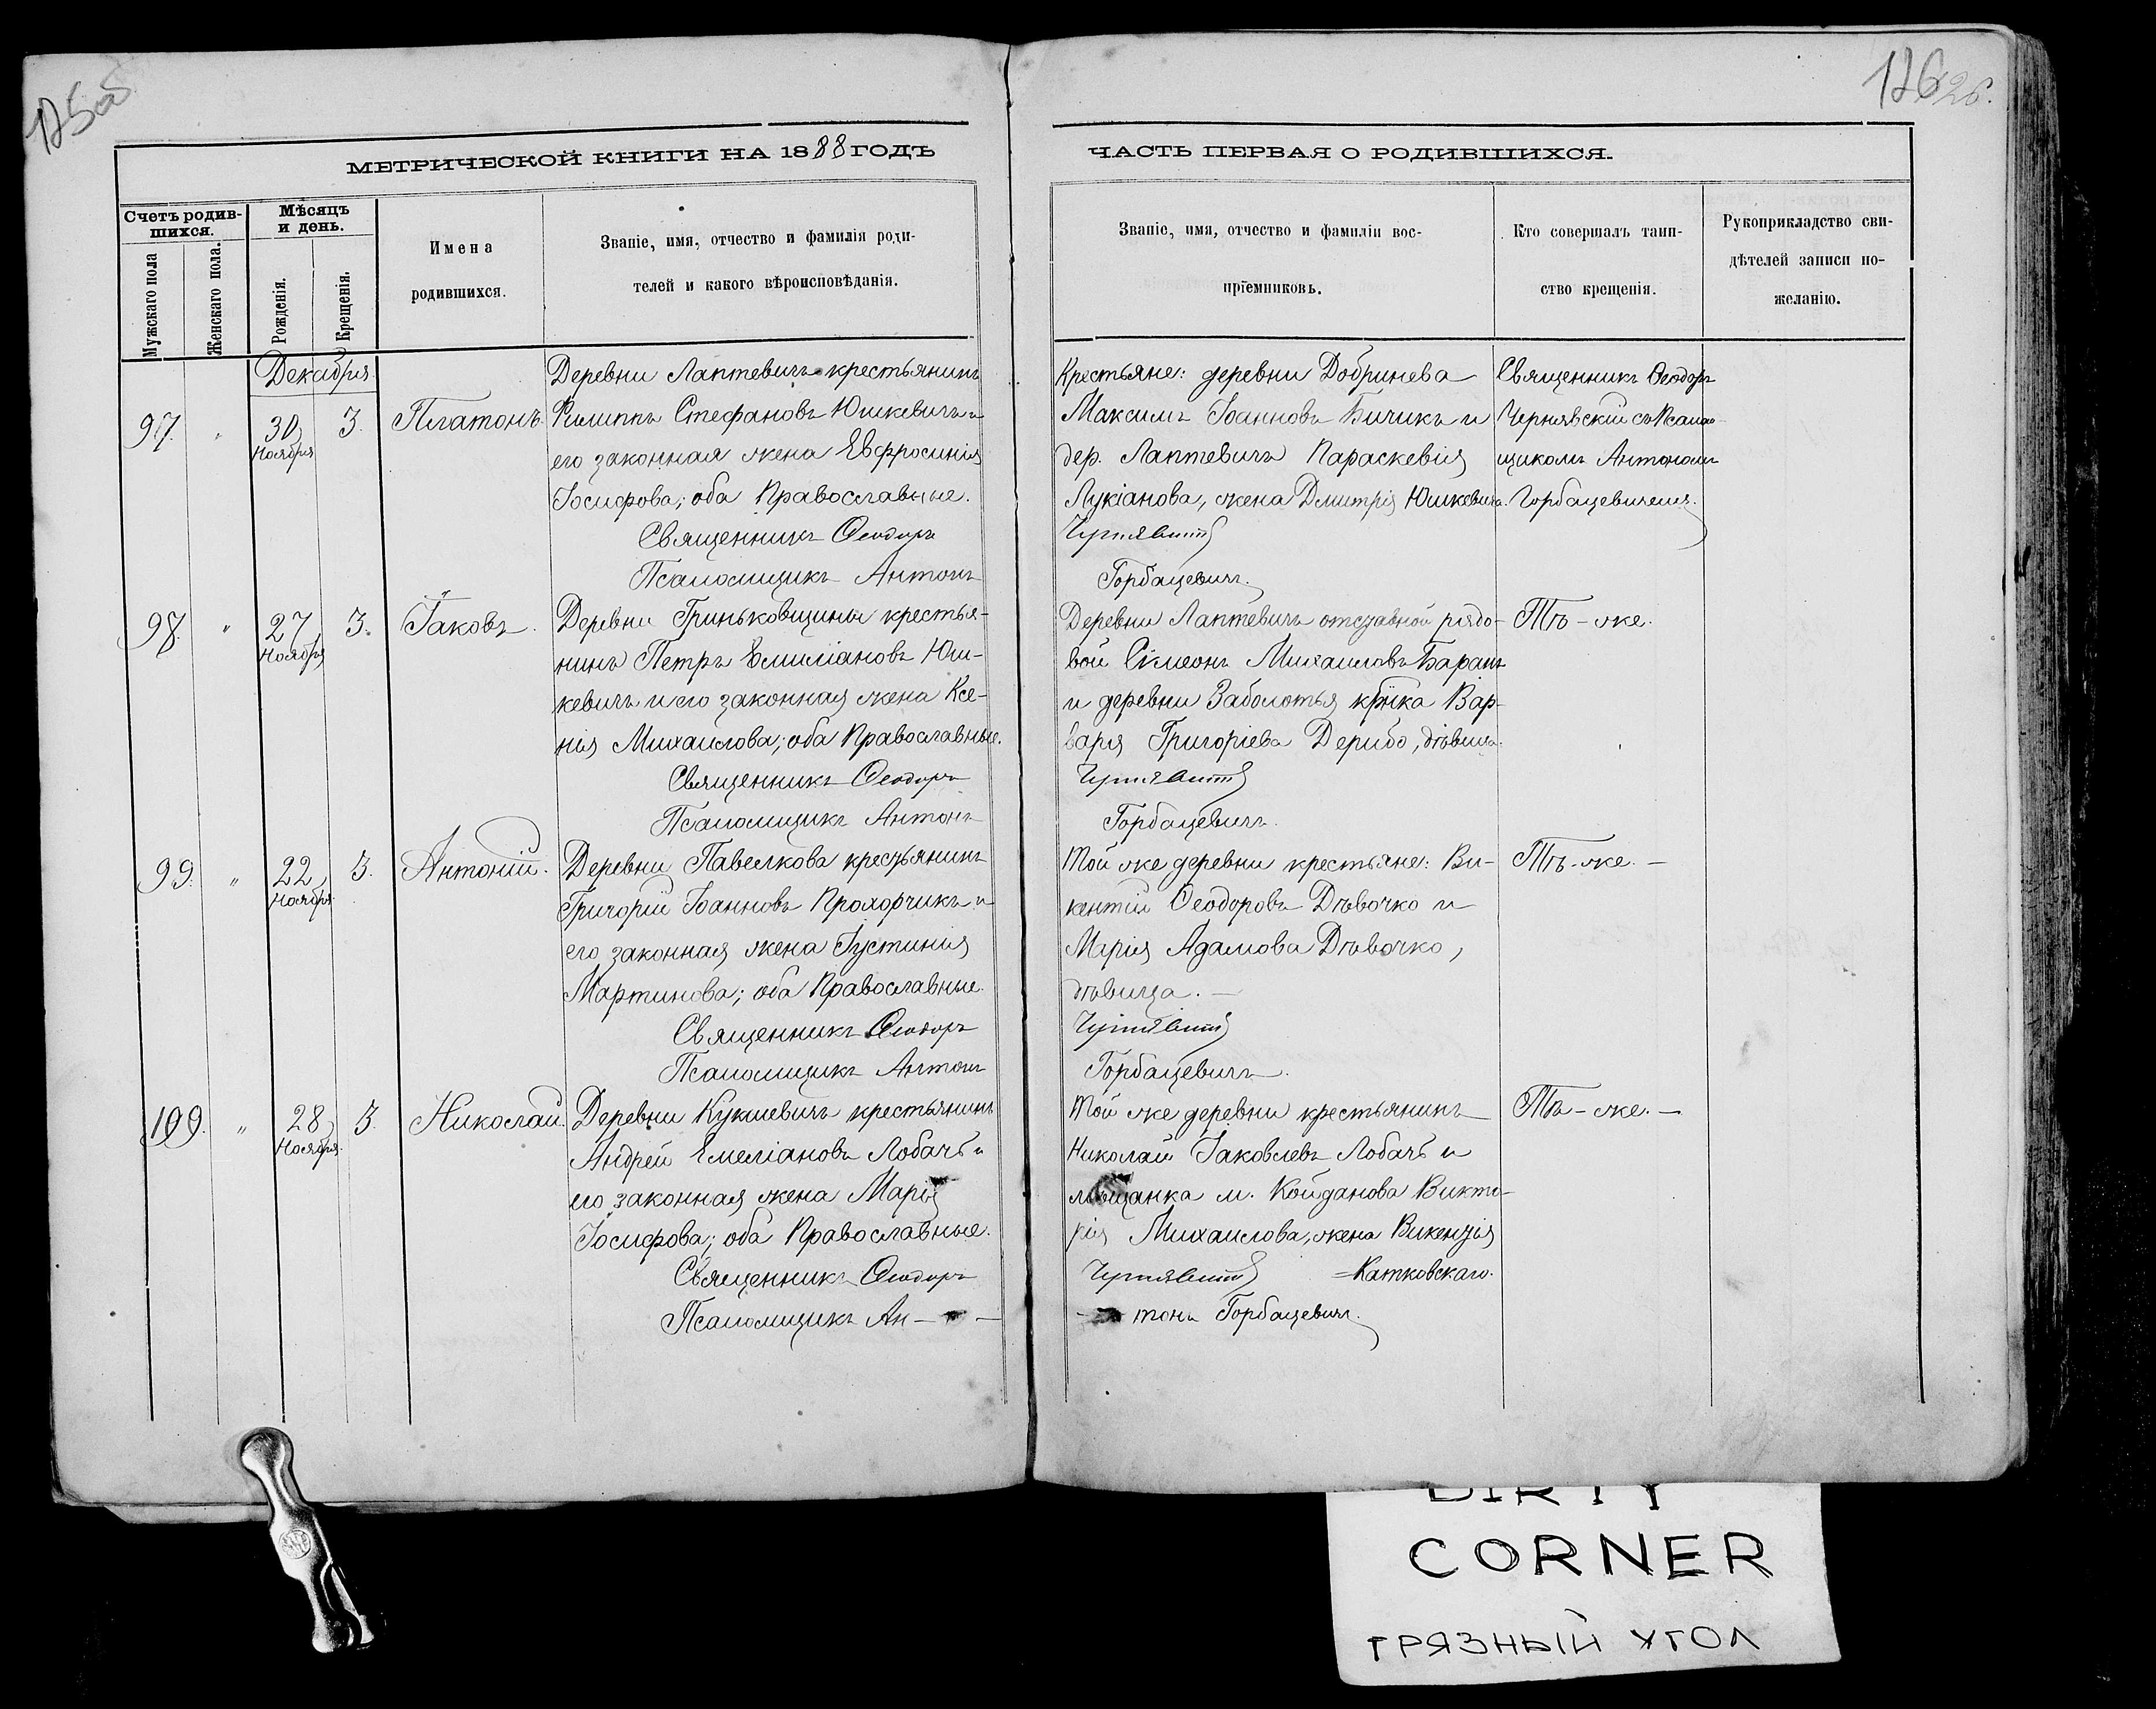 125об
126 26.
МЕТРИЧЕСКОЙ КНИГИ НА 1888 ГОДЪ
ЧАСТЬ ПЕРВАЯ О РОДИВШИХСЯ.
Счетъ родив-
шихся.
Мужскаго пола
Женскаго пола.
Мѣсяцъ
и день.
Рожденія.
Крещенія.
Имена
родившихся.
Званіе, имя, отчество и фамилія роди-
телей и какого вѣроисповѣданія.
Званіе, имя, отчество и фамиліи вос-
пріемниковъ.
Кто совершалъ таин-
ство крещенія.
Рукоприкладство сви-
дѣтелей записи по-
желанію.
Декабря.
97. " 30 Ноября 3. Платонъ.
Деревни Лаптевичъ крестьянинъ
Филиппъ Стефановъ Юшкевичъ и
его законная жена Евфросинія
Іосифова; оба Православные.
Священникъ Ѳеодоръ
Псаломщикъ Антонъ
Крестьяне: деревни Добринева
Максимъ Іоанновъ Бичикъ и
дер. Лаптевичъ Параскевія
Лукіанова, жена Дмитрія Юшкевича.
Чернявскій
Горбацевичъ.
Священникъ Ѳеодоръ
Чернявскій съ Псалом-
щикомъ Антономъ
Горбацевичемъ.
98. " 27 Ноября 3. Іаковъ.
Деревни Гриньковщины крестья-
нинъ Петръ Емиліановъ Юш-
кевичъ и его законная жена Ксе-
нія Михаилова; оба Православные.
Священникъ Ѳеодоръ
Псаломщикъ Антонъ
Деревни Лаптевичъ отставной рядо-
вой Сімеонъ Михаиловъ Баранъ
и деревни Заболотья кр̃нка Вар-
вара Григоріева Дерибо, дѣвица.
Чернявскій
Горбацевичъ.
Тѣ-же.
99. " 22 Ноября 3. Антоній.
Деревни Павелкова крестьянинъ
Григорій Іоанновъ Прохорчикъ и
его законная жена Іустинія
Мартинова; оба Православные.
Священникъ Ѳеодоръ
Псаломщикъ Антонъ
Той же деревни крестьяне: Ви-
кентій Ѳеодоровъ Дѣвочко и
Марія Адамова Дѣвочко,
дѣвица. —
Чернявскій
Горбацевичъ.
Тѣ-же. —
100. " 28 Ноября. 3. Николай.
Деревни Кукшевичъ крестьянинъ
Андрей Емеліановъ Лобачъ и
его законная жена Марія
Іосифова; оба Православные.
Священникъ Ѳеодоръ
Псаломщикъ Ан—
Той же деревни крестьянинъ
Николай Іаковлевъ Лобачъ и
мѣщанка м. Койданова Викто-
рія Михаилова, жена Викентія
Чернявскій =Катковскаго.
тонъ Горбацевичъ.
Тѣ-же. —
DIRTY
CORNER
ГРЯЗНЫЙ УГОЛ